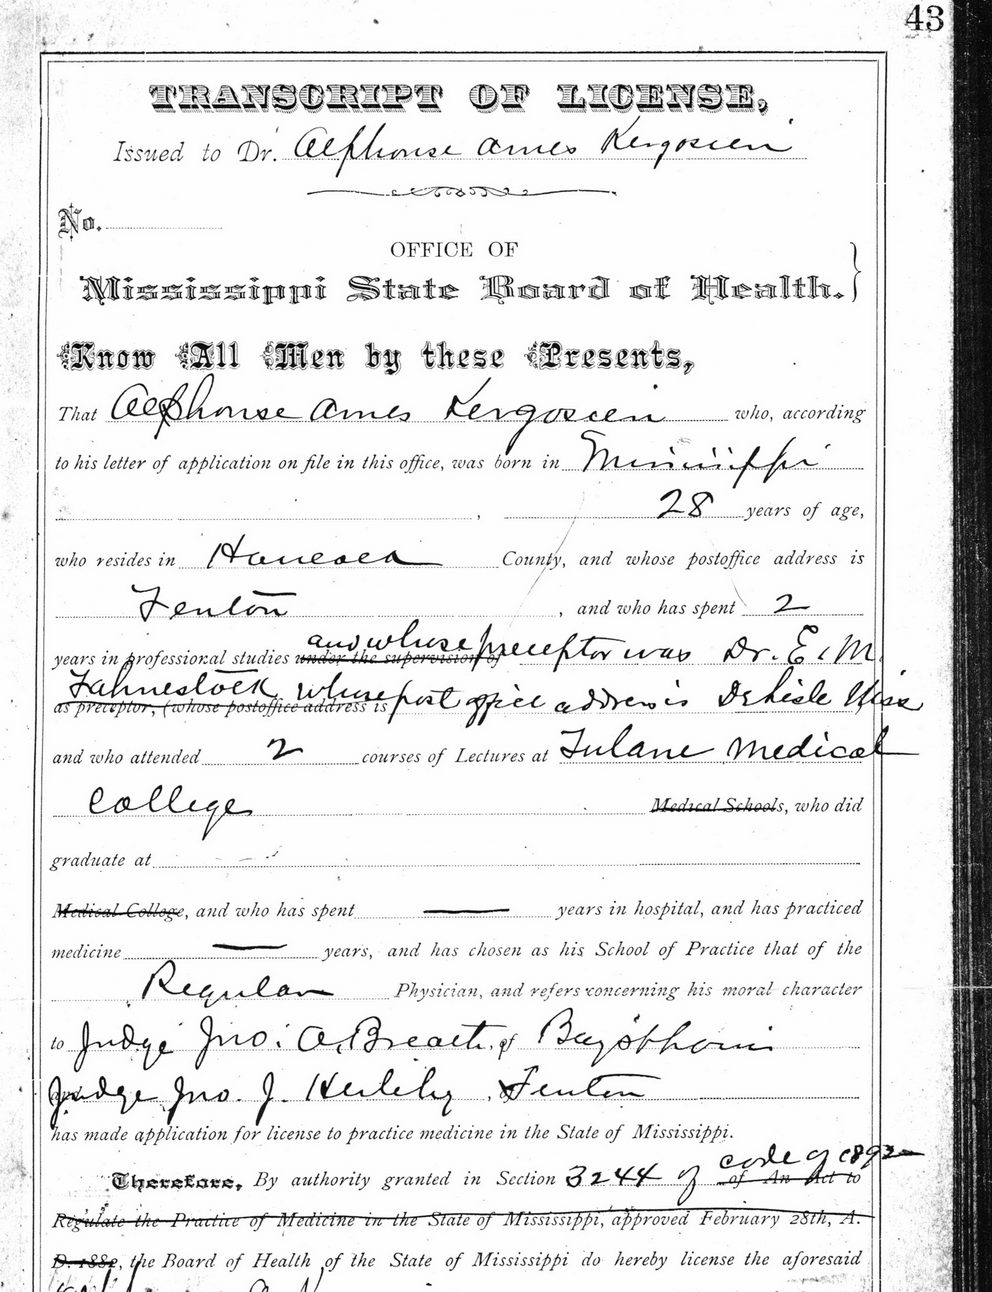 43
TRANSCRIPT OF LICENSE,
Issued to Dr. Alphonse Ames Kergosien
No.
OFFICE OF
Mississippi State Board of Health.
Know All Men by these Presents,
That Alphonse Ames Kergosien who, according
to his letter of application on file in this office, was born in Mississippi
, 28 years of age,
who resides in Hancock County, and whose postoffice address is
Fenton, and who has spent 2
and whose preceptor was Dr. E. M.
years in professional studies under the supervision of
Fahnestock whose post office address is DeLisle Miss
as preceptor, (whose postoffice address is
and who attended 2 courses of Lectures at Tulane Medical
College Medical Schools, who did
graduate at
Medical College, and who has spent — years in hospital, and has practiced
medicine — years, and has chosen as his School of Practice that of the
Regular Physician, and refers concerning his moral character
to Judge Jno. A. Breath, of Bay St Louis
Judge Jno. J. Fenton
has made application for license to practice medicine in the State of Mississippi.
code of 1892
Therefore, By authority granted in Section 3244 of of An Act to
Regulate the Practice of Medicine in the State of Mississippi, approved February 28th, A.
D. 1882, the Board of Health of the State of Mississippi do hereby license the aforesaid